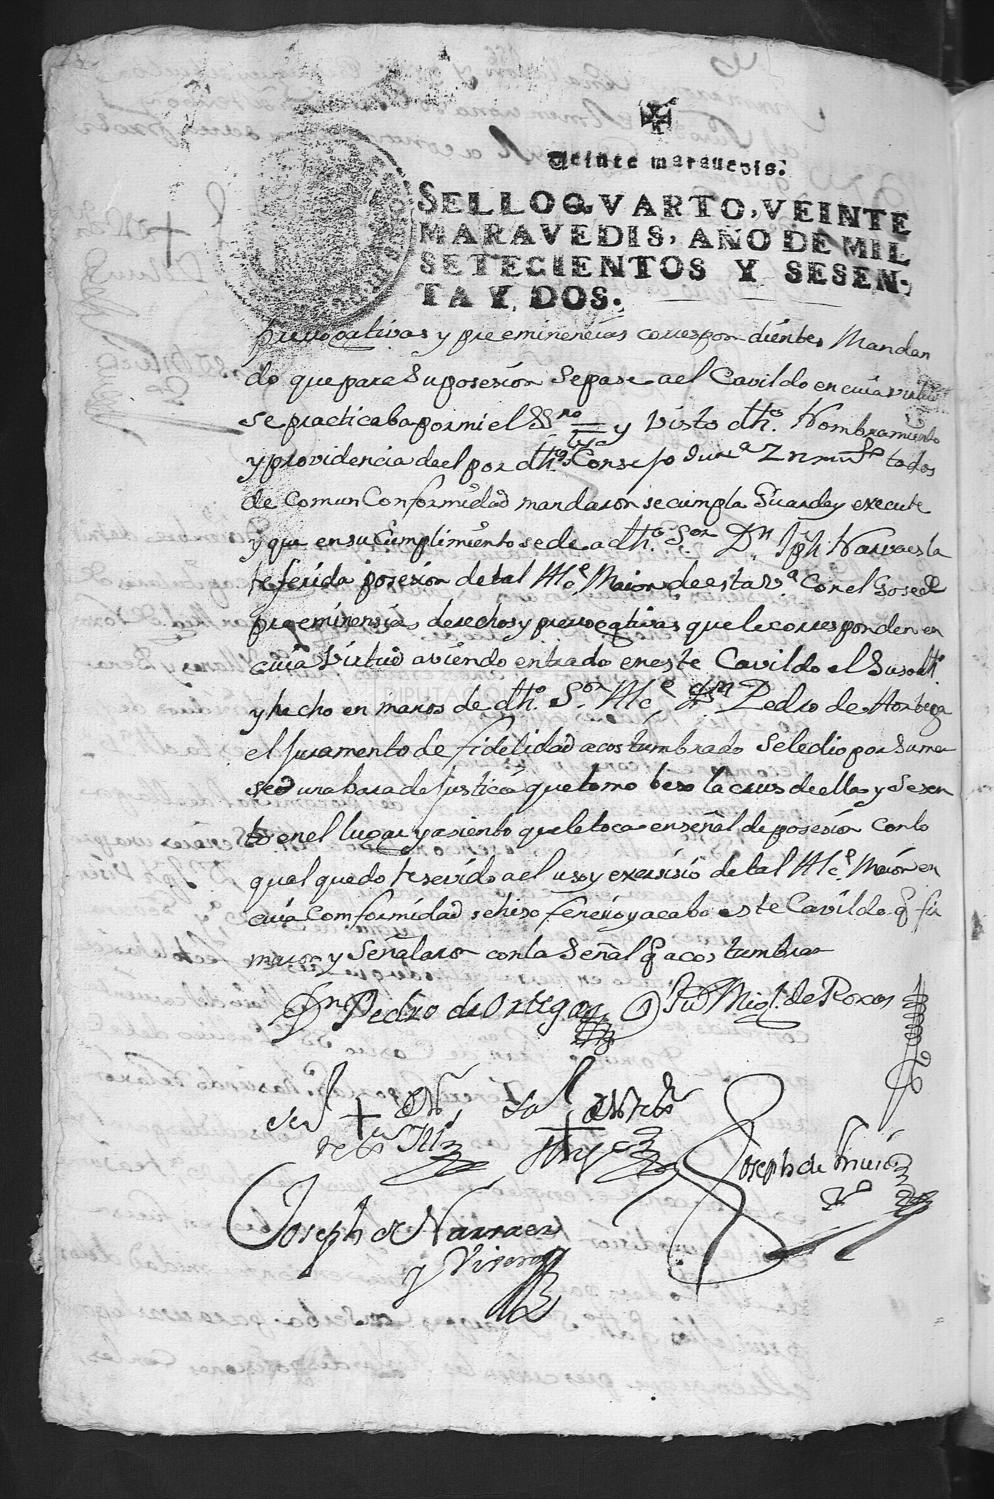 Veinte maravedis.
SELLO QVARTO, VEINTE
MARAVEDIS, AÑO DE MIL
SETECIENTOS Y SESEN-
TA Y DOS.
prerrogativas y preeminencias correspondientes Mandan
do que para Su posesion Se pase a el Cavildo en cuia virtud
se practicaba por mi el y Visto dho. Nombramiento
y providencia de el por dho. Consejo
de Comun Conformidad mandaron se cumpla Guarde y execute
y que en su Cumplimiento se de a dho. Sor. Dn. Jph. Narvaes la
referida posesion de tal Alce. Maior de esta va. Con el Gose de
preeminensias derechos y prerrogativas que le corresponden en
cuia Virtud aviendo entrado en este Cavildo el Susodho.
DIPUTACIÓN
y hecho en manos de dho. Sor. Alce. Dn. Pedro de Hortega
el Juramento de fidelidad acostumbrado Se le dio por Su mer
sed una bara de Justicia que tomo beso la crus de ella y se sen
to en el lugar y asiento que le toca en señal de posesion con lo
qual quedo resevido a el uso y exersisio de tal Alce. Maior en
cuia Comformidad se hiso fenecio y acabo este Cavildo q. fir
maron y Señalaron con la Señal q. acostumbran
Dn. Pedro de Ortega
Migl. de Roxas
Joseph de
Joseph de Narvaes
y Vivero